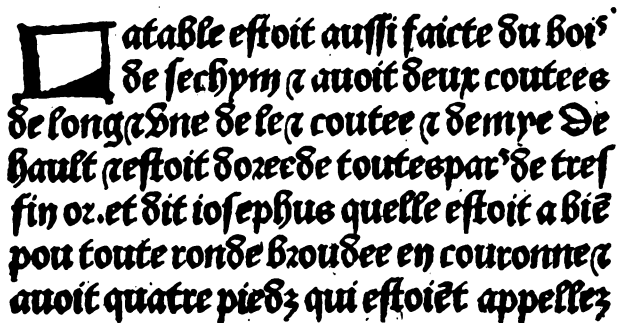 Latable estoit aussi faicte du bois
de sechym ⁊ auoit deux coutees
de long ⁊ vne de le ⁊ coutee ⁊ demye De
hault ⁊ estoit doree de toutes pars de tres
fin or..et dit iosephus quelle estoit a biẽ
pou toute ronde broudee en couronne ⁊
auoit quatre piedz qui estoiẽt appellez